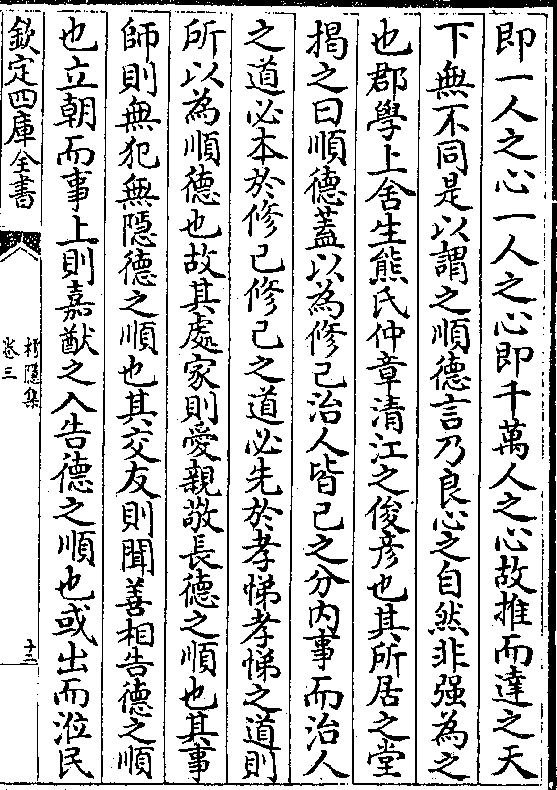 即一人之心一人之心即千萬人之心故推而達之天
下無不同是以謂之順德言乃良心之自然非强為之
也郡學上舍生熊氏仲章清江之俊彦也其所居之堂
揭之曰順德蓋以為修已治人皆已之分内事而治人
之道必本於修已修已之道必先於孝悌孝悌之道則
所以為順德也故其處家則愛親敬長德之順也其事
師則無犯無隠德之順也其交友則聞善相告德之順
也立朝而事上則嘉猷之入告德之順也或出而涖民
欽定四庫全書
朽隠集
卷三
十二